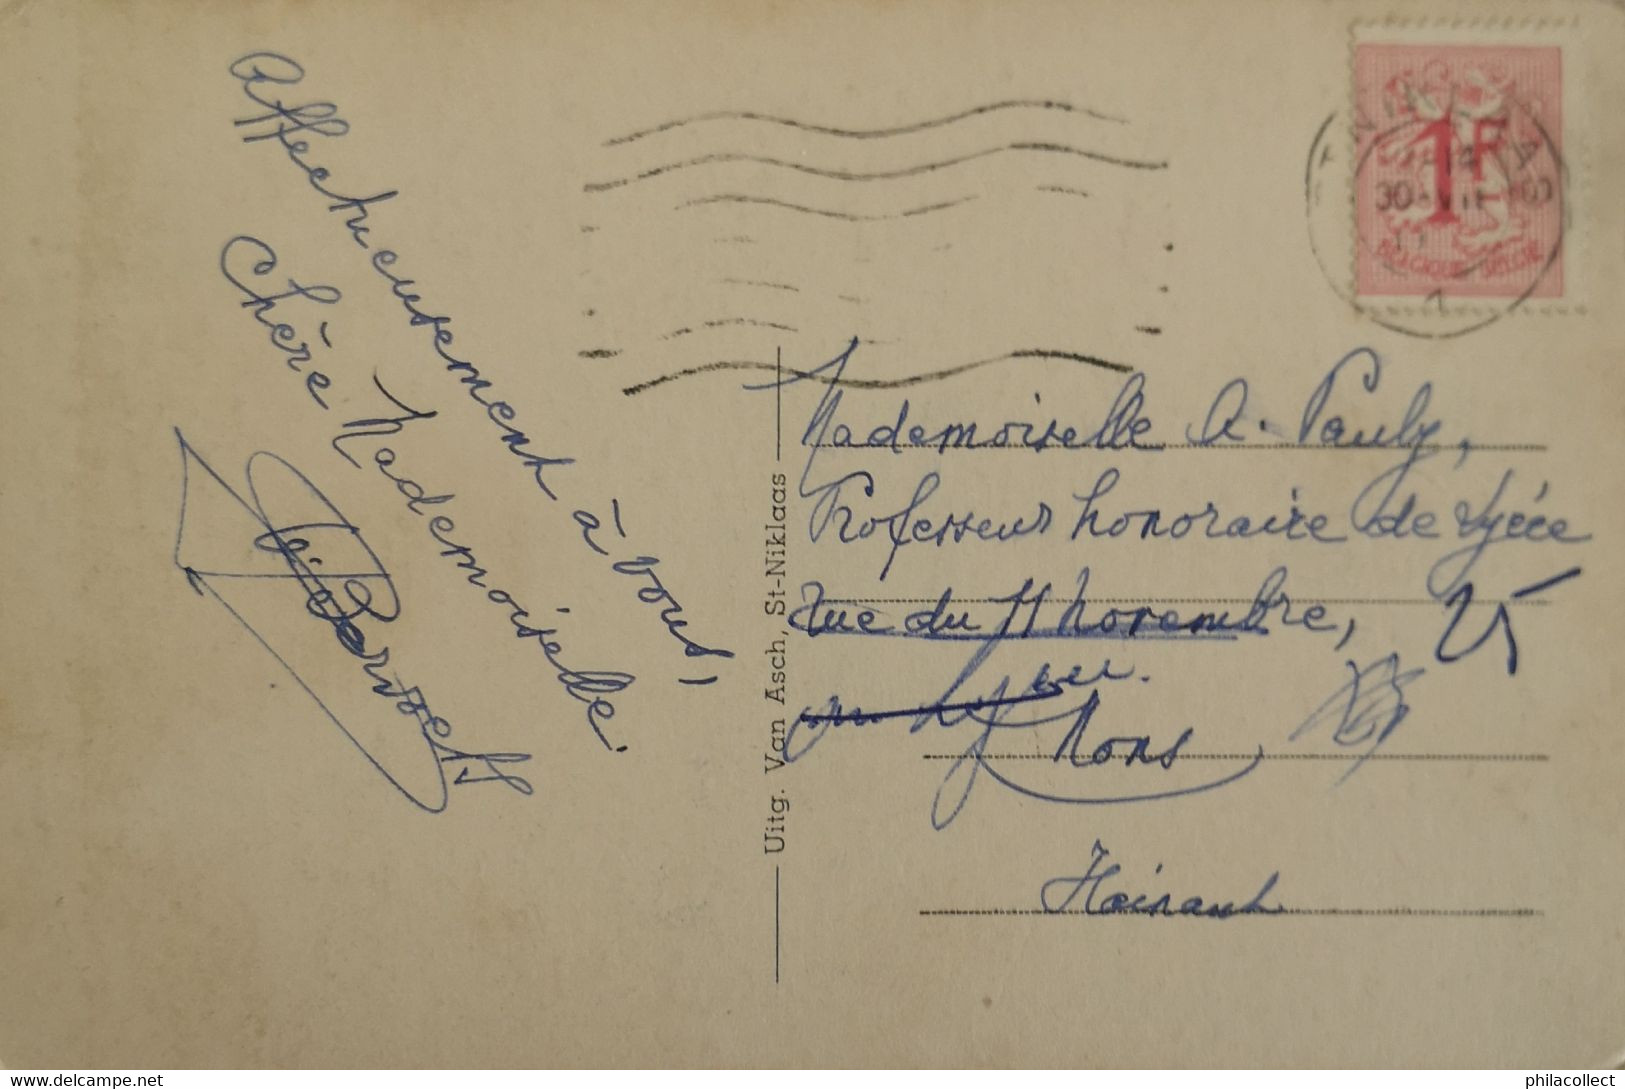 Affectueusement à vous,
Chère Mademoiselle.
Uitg. Van Asch, St-Niklaas
1F
BELGIQUE-BELGIE
NIKLAAS
30-VII
Mademoiselle A. Pauly,
Professeur honoraire de Lycée
Rue du 11 Novembre, 25
Mons
Hainaut
philacollect